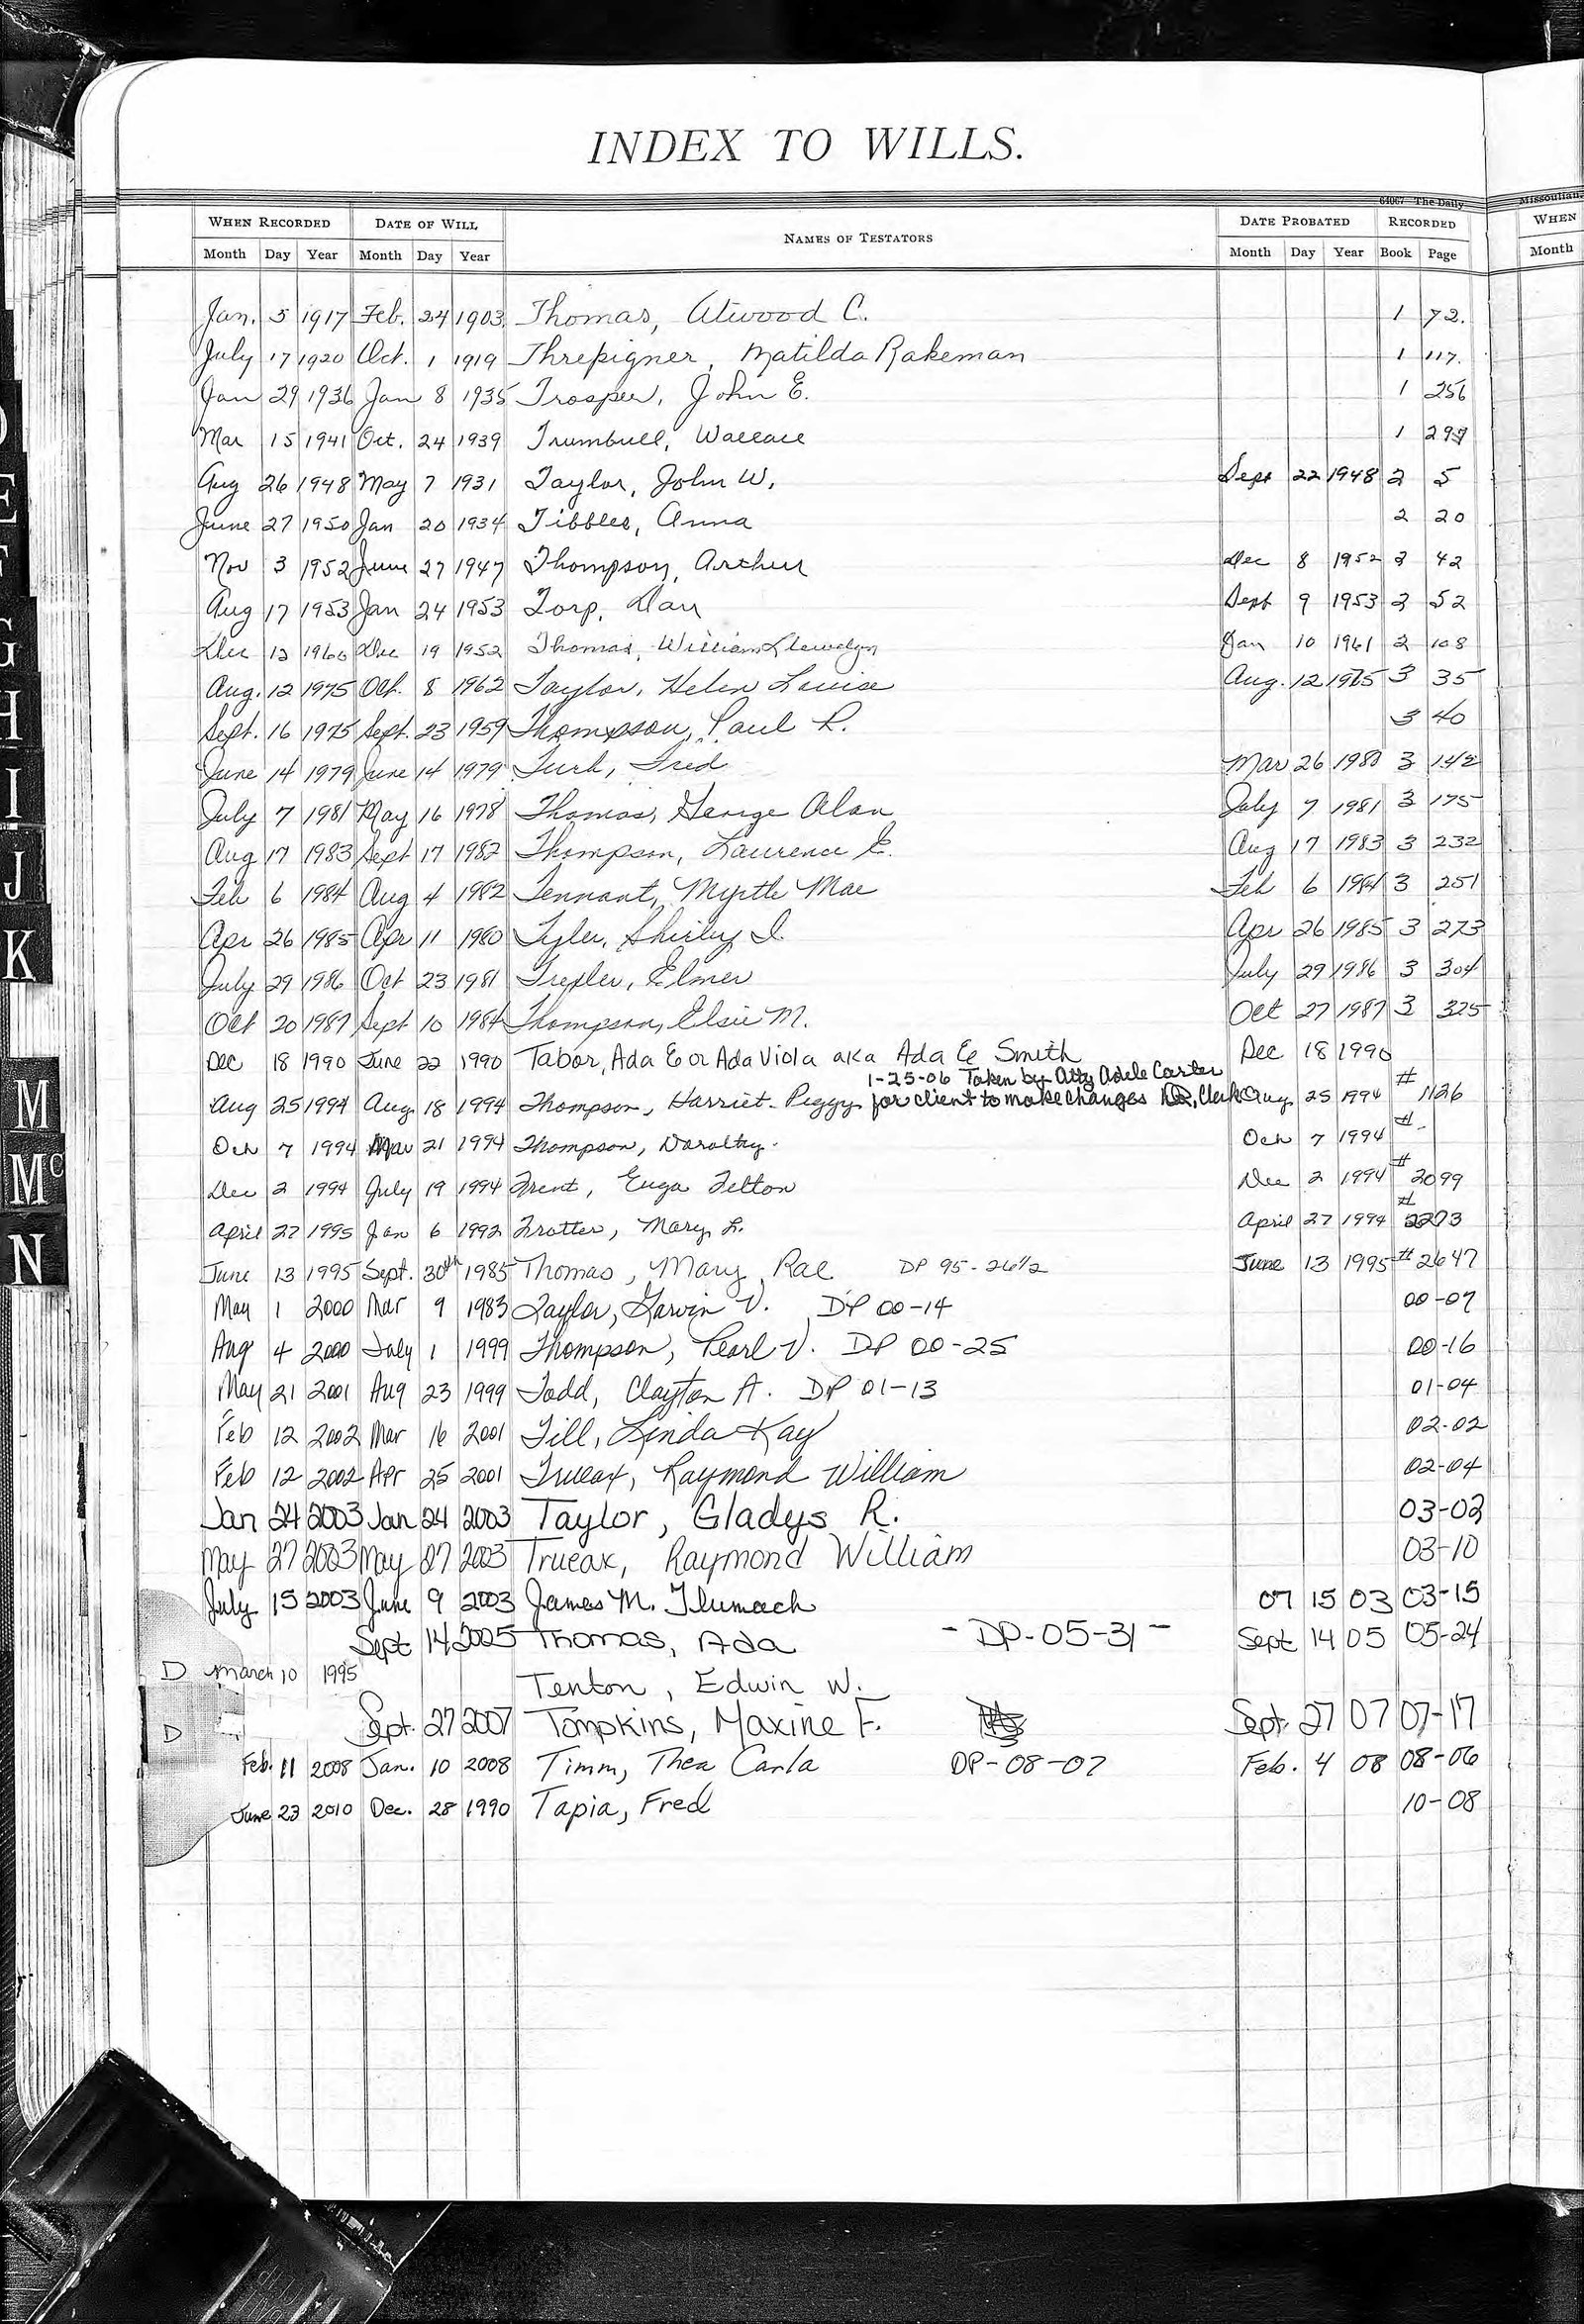 INDEX TO WILLS.
64067 The Daily Missoulian.
WHEN RECORDED DATE OF WILL NAMES OF TESTATORS DATE PROBATED RECORDED WHEN
Month Day Year Month Day Year Month Day Year Book Page Month
Jan. 5 1917 Feb. 24 1903 Thomas, Atwood C. 1 72.
July 17 1920 Oct. 1 1919 Threpigner, Matilda Rakeman 1 117.
Jan 29 1936 Jan 8 1935 Trosper, John E. 1 256
Mar 15 1941 Oct. 24 1939 Trumbull, Wallace 1
Aug 26 1948 May 7 1931 Taylor, John W. Sept 22 1948 2 5
June 27 1950 Jan 20 1934 Tibbles, Anna 2 20
Nov 3 1952 June 27 1947 Thompson, Arthur Dec 8 1952 42
Aug 17 1953 Jan 24 1953 Torp, Dan Sept 9 1953 2 52
Dec 12 1960 Dec 19 1952 Thomas, William Llewelyn Jan 10 1961 2 108
Aug. 12 1975 Oct. 8 1962 Taylor, Helen Louise Aug. 12 1975 3 35
Sept. 16 1975 Sept. 23 1959 Thompson, Paul R. 3 40
June 14 1979 June 14 1979 Turk, Fred Mar 26 1980 3 142
July 7 1981 May 16 1978 Thomas, George Alan July 7 1981 3 175
Aug 17 1983 Sept 17 1982 Thompson, Laurence E. Aug 17 1983 3 232
Feb 6 1984 Aug 4 1982 Tennant, Myrtle Mae Feb 6 1984 3 251
Apr 26 1985 Apr 11 1980 Tyler, Shirley I. Apr 26 1985 3 273
July 29 1986 Oct 23 1981 Trexler, Elmer July 29 1986 3 304
Oct 20 1987 Sept 10 1984 Thompson, Elsie M. Oct 27 1987 3 325
Dec 18 1990 June 22 1990 Tabor, Ada E or Ada Viola aka Ada E Smith Dec 18 1990
1-25-06 Taken by Atty Adele Carter
Aug 25 1994 Aug 18 1994 Thompson, Harriet Peggy for client to make changes Clerk Aug 25 1994 # 1126
Oct 7 1994 Mar 21 1994 Thompson, Dorothy Oct 7 1994 #
Dec 2 1994 July 19 1994 Trent, Euga Telton Dec 2 1994 # 2099
April 27 1995 Jan 6 1992 Trotter, Mary L. April 27 1994 # 2273
June 13 1995 Sept. 30th 1985 Thomas, Mary Rae DP 95-26 1/2 June 13 1995 # 2647
May 1 2000 Mar 9 1983 Taylor, Garvin V. DP 00-14 00-07
Aug 4 2000 July 1 1999 Thompson, Pearl V. DP 00-25 00-16
May 21 2001 Aug 23 1999 Todd, Clayton A. DP 01-13 01-04
Feb 12 2002 Mar 16 2001 Till, Linda Kay 02-02
Feb 12 2002 Apr 25 2001 Trueax, Raymond William 02-04
Jan 24 2003 Jan 24 2003 Taylor, Gladys R. 03-02
May 27 2003 May 27 2003 Trueax, Raymond William 03-10
July 15 2003 June 9 2003 James M. Tlumach 07 15 03 03-15
Sept 14 2005 Thomas, Ada - DP-05-31 - Sept 14 05 05-24
D March 10 1995 Tenton, Edwin W.
D Sept. 27 2007 Tompkins, Maxine F. Sept. 27 07 07-17
Feb. 11 2008 Jan. 10 2008 Timm, Thea Carla DP-08-07 Feb. 4 08 08-06
June 23 2010 Dec. 28 1990 Tapia, Fred 10-08
E
G
H
I
J
K
M
Mc
N